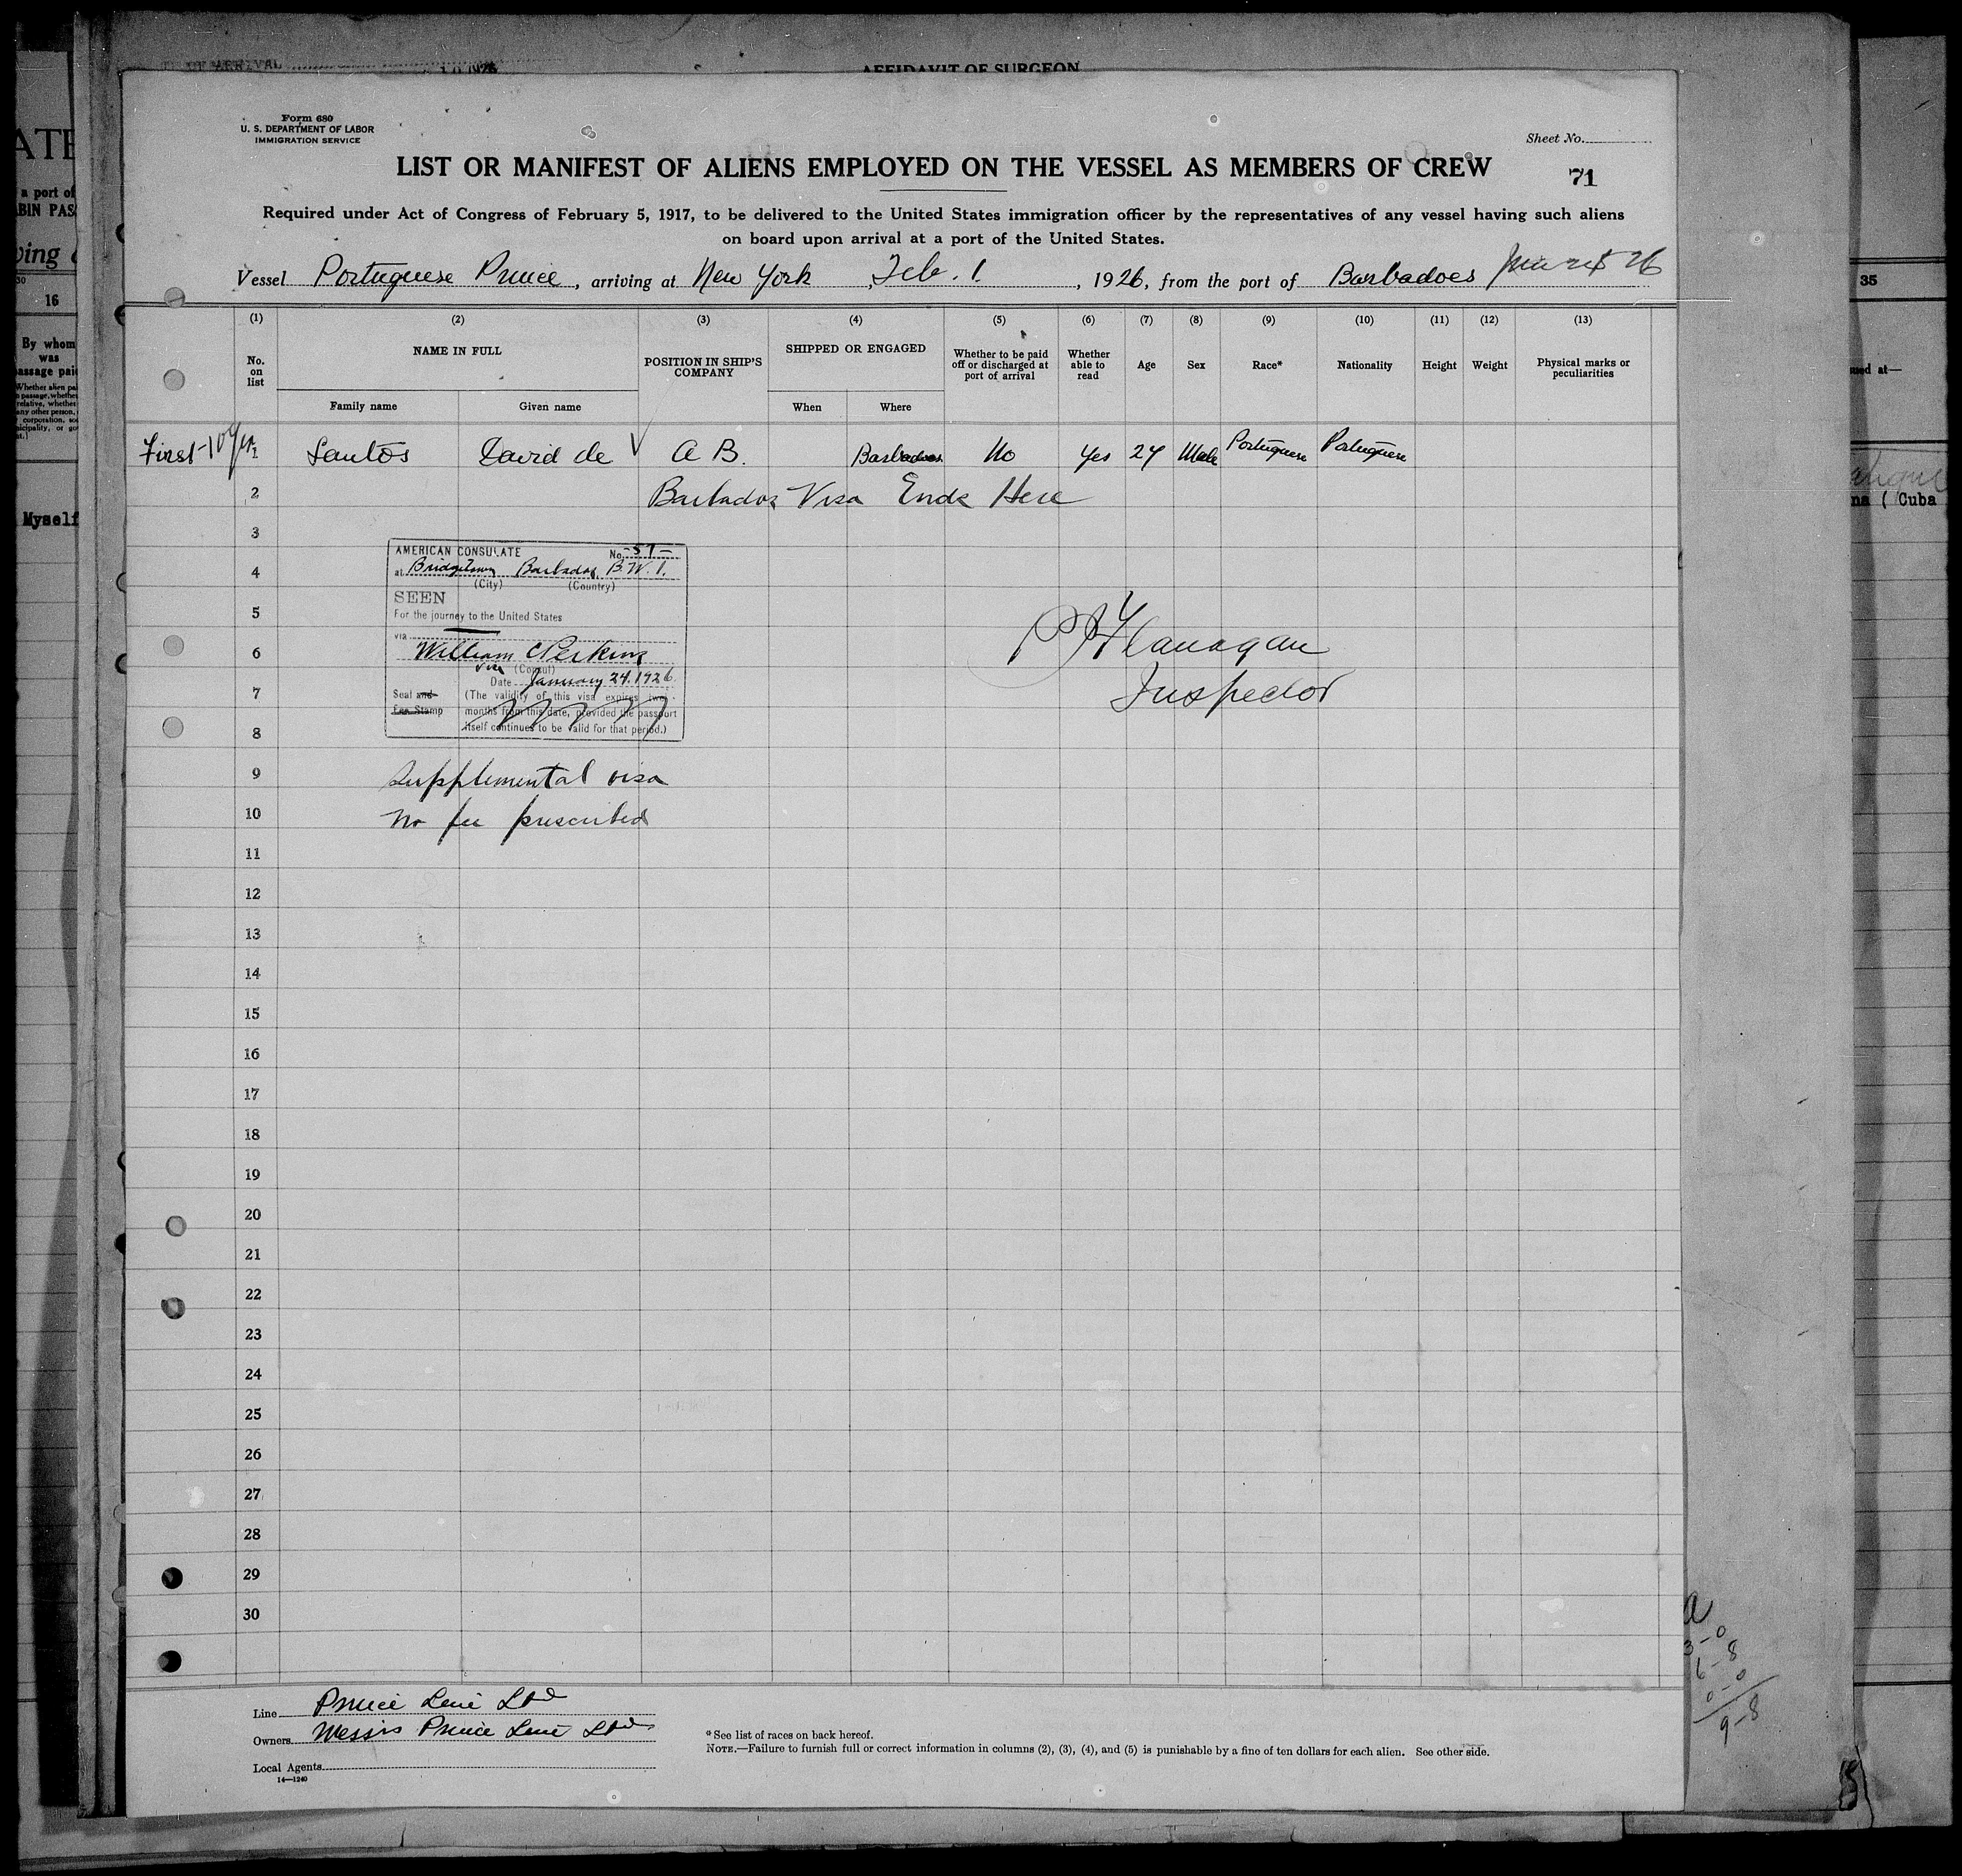 OF ARRIVAL
1926
AFFIDAVIT OF SURGEON
Form 680
U. S. DEPARTMENT OF LABOR
IMMIGRATION SERVICE
Sheet No.
LIST OR MANIFEST OF ALIENS EMPLOYED ON THE VESSEL AS MEMBERS OF CREW
71
Required under Act of Congress of February 5, 1917, to be delivered to the United States immigration officer by the representatives of any vessel having such aliens
on board upon arrival at a port of the United States.
Vessel Portuguese Prince, arriving at New York, Feb. 1, 1926, from the port of Barbadoes
(1) (2) (3) (4) (5) (6) (7) (8) (9) (10) (11) (12) (13)
No. on list
NAME IN FULL
Family name Given name
POSITION IN SHIP'S COMPANY
SHIPPED OR ENGAGED
When Where
Whether to be paid off or discharged at port of arrival
Whether able to read
Age Sex Race* Nationality Height Weight
Physical marks or peculiarities
First - 10 yrs 1 Santos David de A B. Barbadoes No Yes 24 Male Portuguese Portuguese
2 Barbados Visa Ends Here
3
4
5
6
7
8
9
10
11
12
13
14
15
16
17
18
19
20
21
22
23
24
25
26
27
28
29
30
AMERICAN CONSULATE No. -57-
at Bridgetown Barbados, B.W.I.
(City) (Country)
SEEN
For the journey to the United States
via
William C Perkins
Vice (Consul)
Date January 24, 1926.
Seal and Fee Stamp
(The validity of this visa expires two
months from this date, provided the passport
itself continues to be valid for that period.)
Supplemental visa
No fee prescribed
Flanagan
Inspector
Line Prince Line Ltd
Owners Messrs Prince Line Ltd
Local Agents
14—1240
* See list of races on back hereof.
NOTE.—Failure to furnish full or correct information in columns (2), (3), (4), and (5) is punishable by a fine of ten dollars for each alien. See other side.
a port of
16
By whom
was
Myself
35
Cuba
3-0
6-8
0-0
9-8